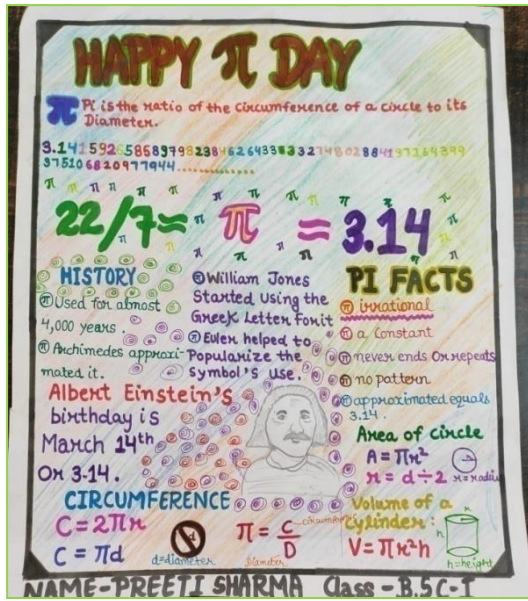 HAPPY π DAY
π Pi is the ratio of the circumference of a circle to its
Diameter.
3.1415926586897982384626433833274802884197264399
37510682097 7944........
22/7≈ π = 3.14
HISTORY
π Used for almost
4,000 years.
π Archimedes approxi-
mated it.
π William Jones
Started using the
Greek Letter for it
π Euler helped to
Popularize the
Symbol's use.
PI FACTS
π irrational
π a Constant
π never ends Or repeats
π no pattern
π approximated equals
3.14.
Albert Einstein's
birthday is
March 14th
Or 3-14.
Area of circle
A = πr²
r = d÷2 r=radius
CIRCUMFERENCE
C = 2πr
C = πd
d
d=diameter
π = C/D
circumference
Diameter
Volume of a
Cylinder:
V = πr²h
r
h
h=height
NAME-PREETI SHARMA Class - B.SC-I